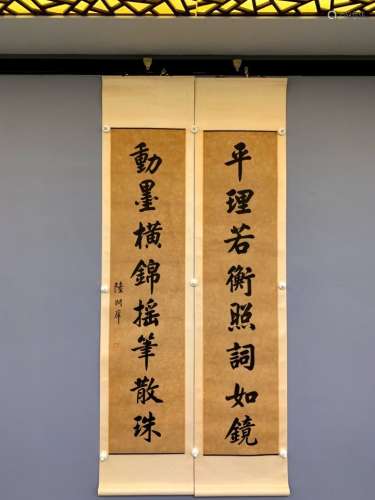 平理若衡照詞如鏡
動墨橫錦搖筆散珠
陸潤庠